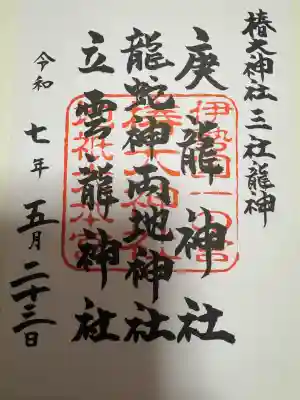 椿大神社 三社龍神
庚龍神社
龍蛇神両地神社
立雲龍神社
令和七年五月二十三日
伊勢国一之宮